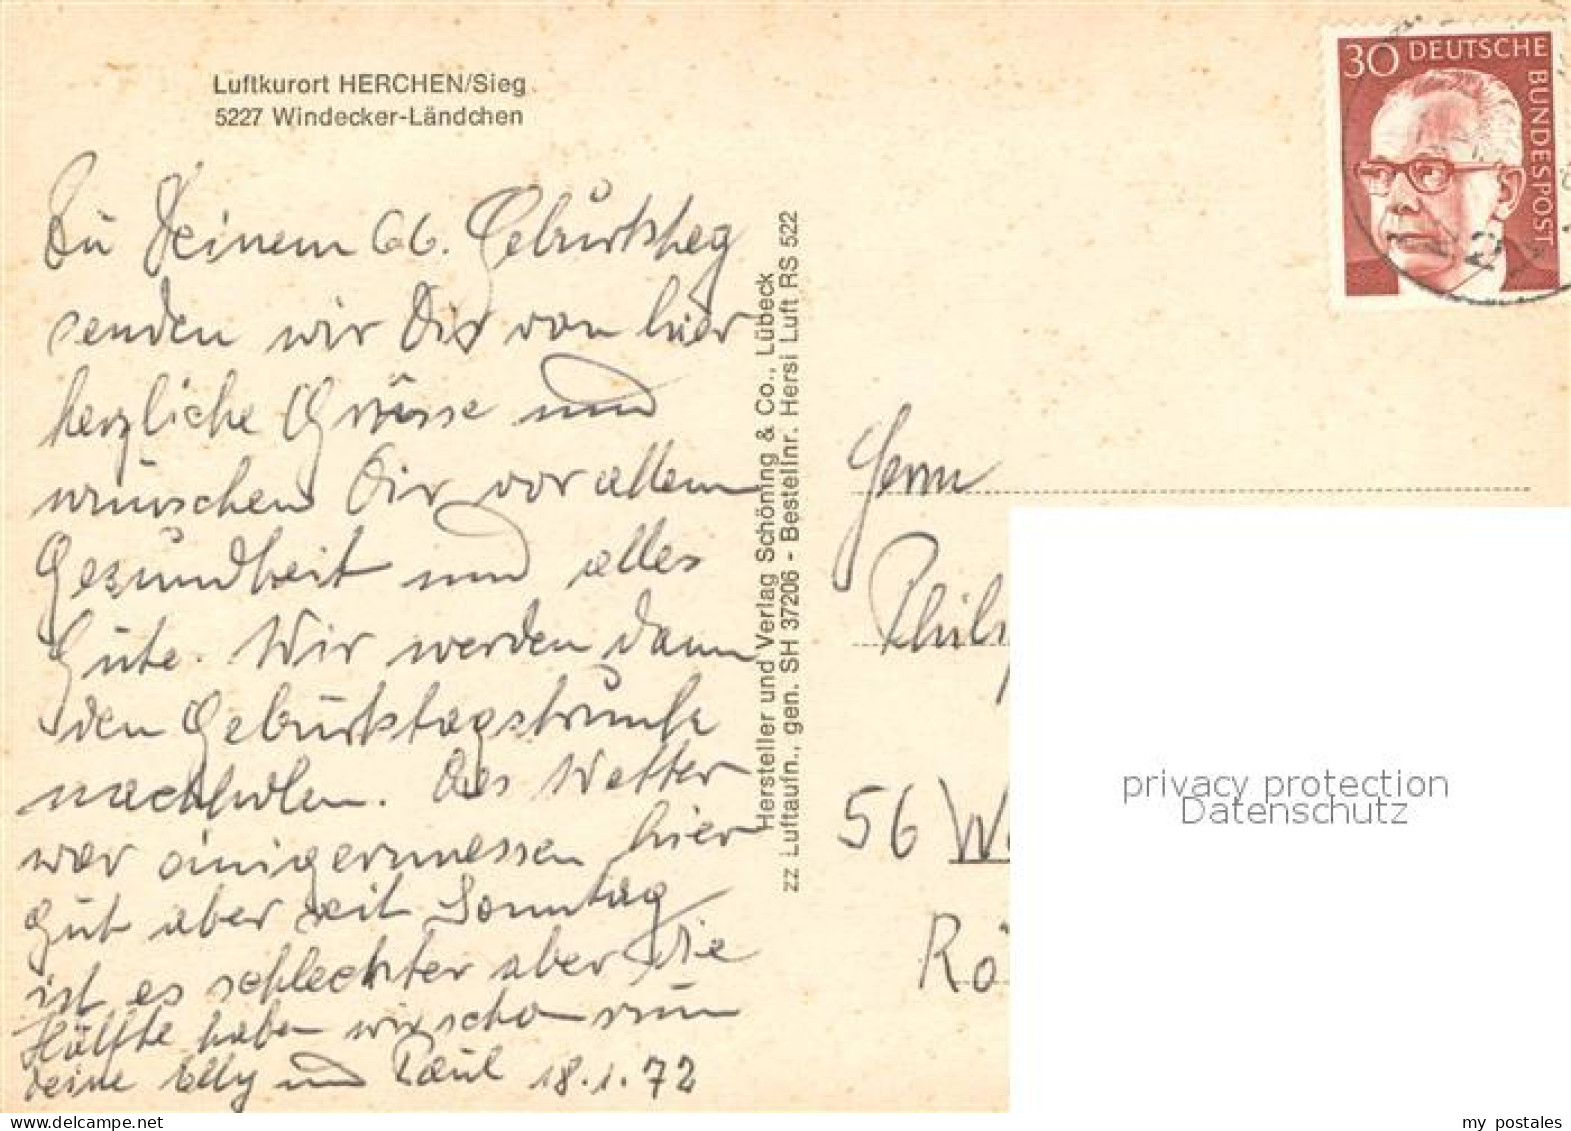 Luftkurort HERCHEN/Sieg
5227 Windecker-Ländchen
Zu Deinem 66. Geburtstag
senden wir Dir von hier
herzliche Grüsse und
wünschen Dir vor allem
Gesundheit und alles
Gute. Wir werden dann
den Geburtstagstrunk
nachholen. Das Wetter
war einigermessen hier
gut aber seit Sonntag
ist es schlechter aber die
Hälfte haben wir schon rum
Deine Elly und Paul 18.1.72
Hersteller und Verlag Schöning & Co., Lübeck
zz Luftaufn., gen. SH 37206 - Bestellnr. Hersi Luft RS 522
30 DEUTSCHE
BUNDESPOST
Herrn
56 W
Rö
privacy protection
Datenschutz
www.delcampe.net
my_postales